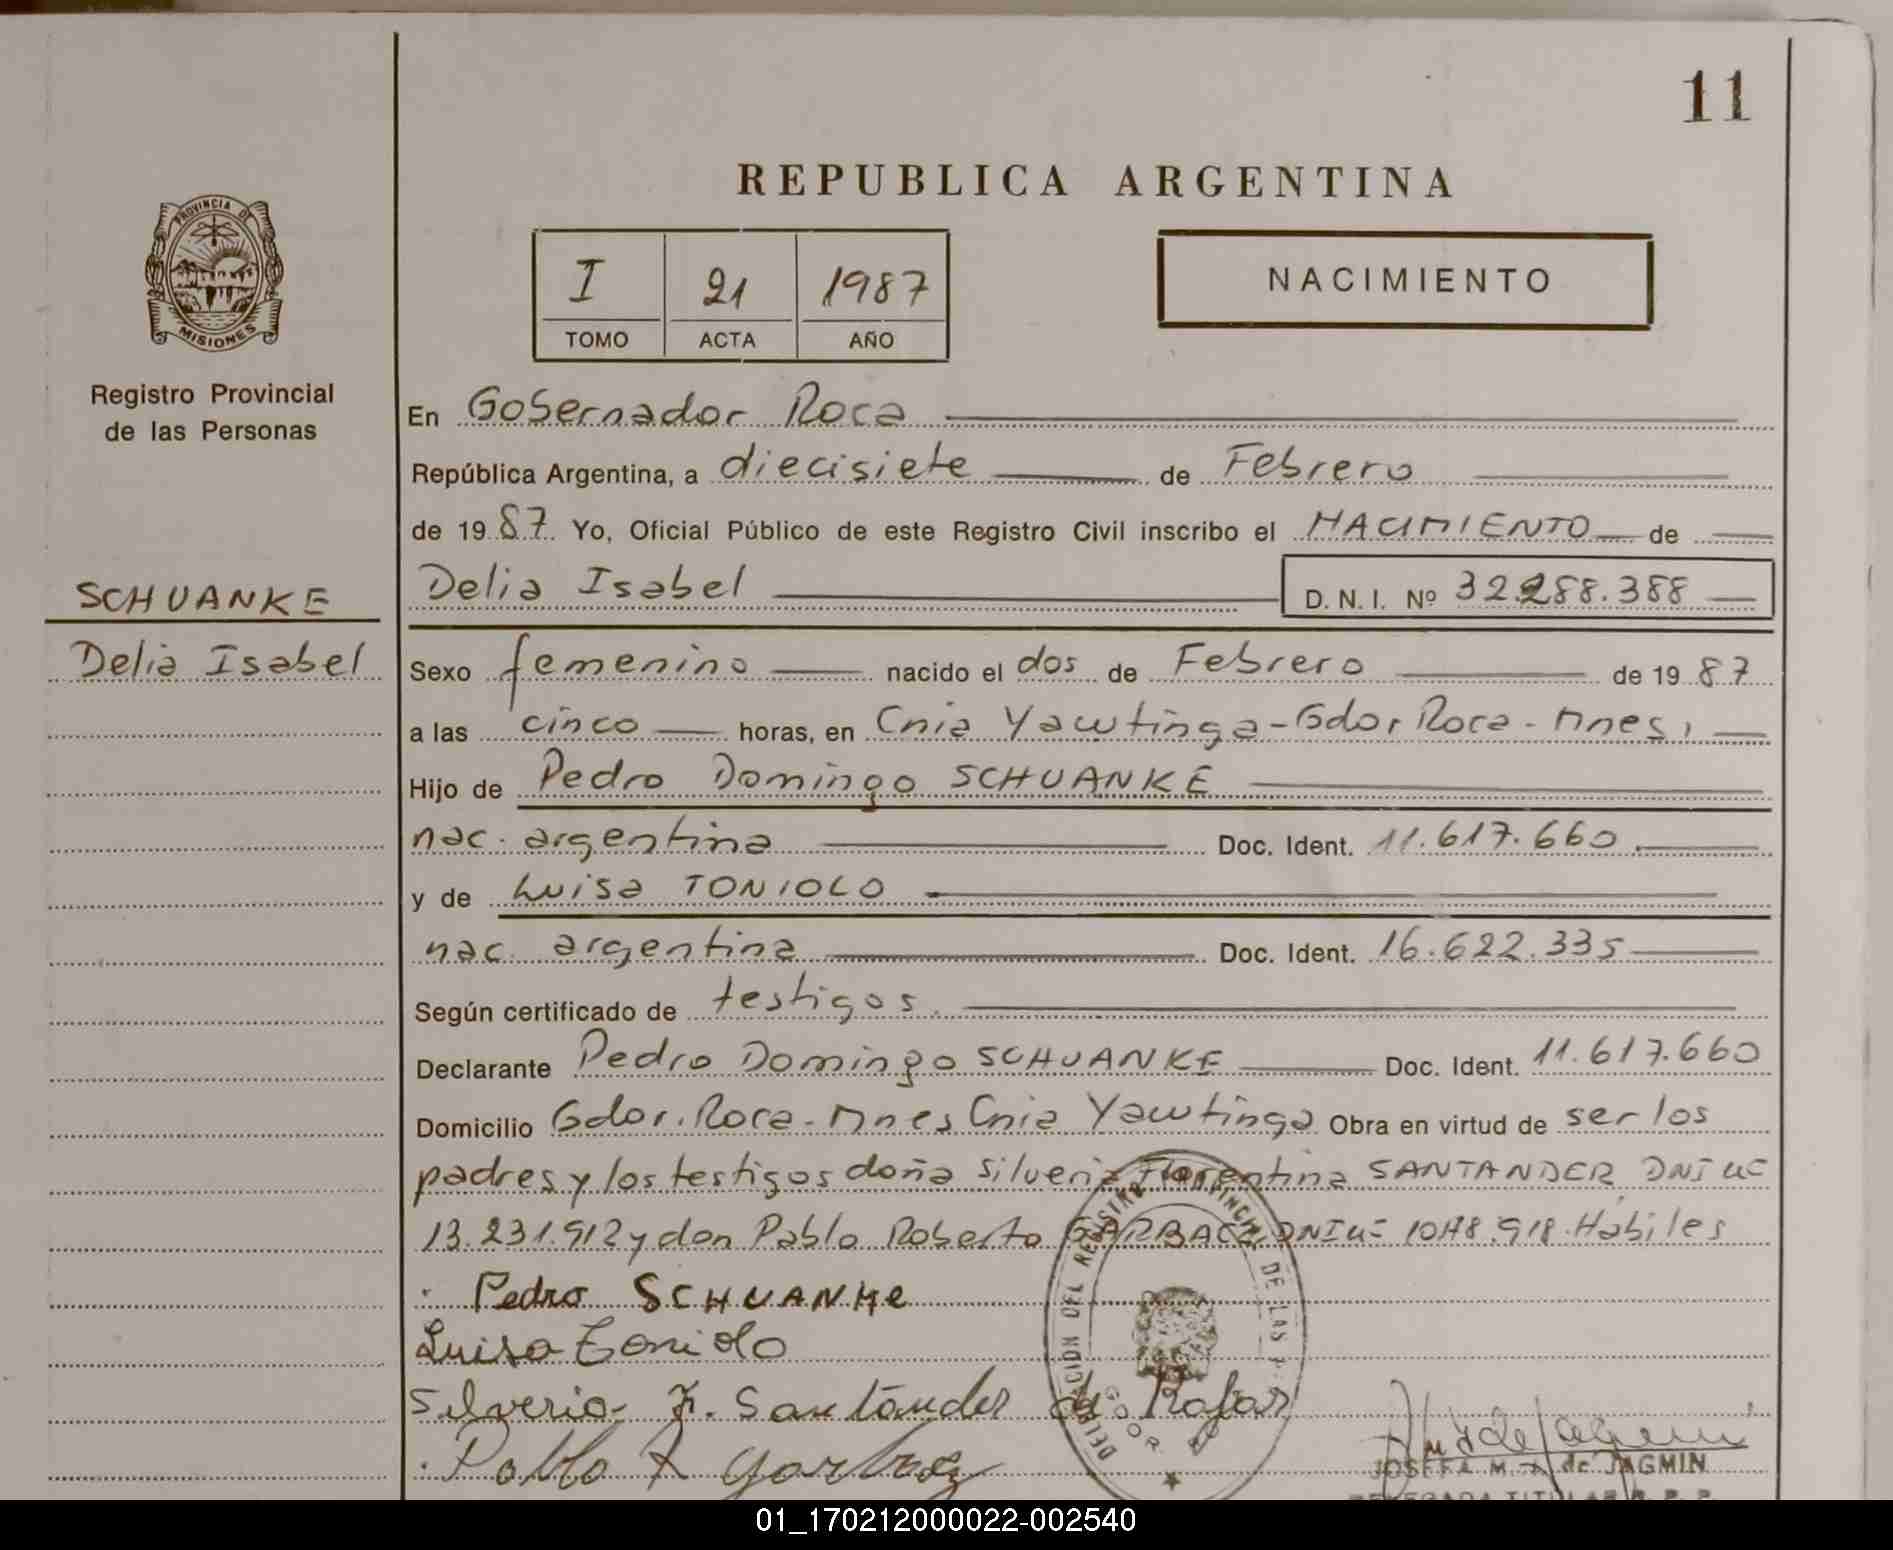 11
REPUBLICA ARGENTINA
PROVINCIA DE
MISIONES
I 21 1987
TOMO ACTA AÑO
NACIMIENTO
Registro Provincial
de las Personas
SCHUANKE
Delia Isabel
En Gobernador Roca
República Argentina, a diecisiete de Febrero
de 1987 Yo, Oficial Público de este Registro Civil inscribo el NACIMIENTO de
Delia Isabel D. N. I. Nº 32.288.388
Sexo femenino nacido el dos de Febrero de 1987
a las cinco horas, en Cnia Yawtinga-Gdor Roca-Mnes,
Hijo de Pedro Domingo SCHUANKE
nac. argentina Doc. Ident. 11.617.660
y de Luisa TONIOLO
nac. argentina Doc. Ident. 16.622.335
Según certificado de testigos.
Declarante Pedro Domingo SCHUANKE Doc. Ident. 11.617.660
Domicilio Gdor. Roca-Mnes Cnia Yawtinga Obra en virtud de ser los
padres y los testigos doña Silveria Florentina SANTANDER DNI
13.231.912 y don Pablo Roberto DNI Hábiles
Pedro SCHUANKe
Luisa Toniolo
Silveria F. Santander de
Pablo R
DELEGACION DEL REGISTRO PROVINCIAL DE LAS
JOSEFA M. de JAGMIN
DELEGADA TITULAR R. P. P.
01_170212000022-002540